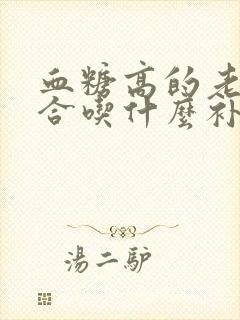 血糖高的老
合喫什麼补
湯二驴